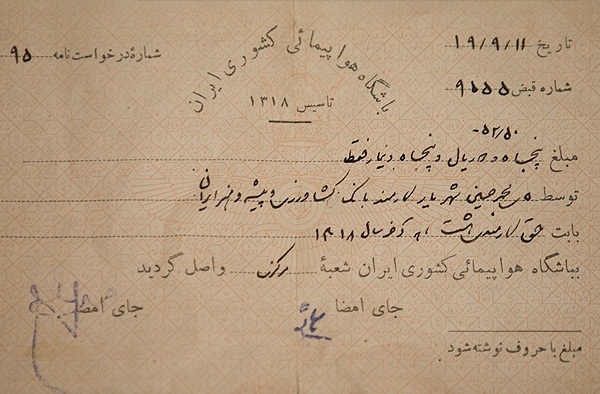 باشگاه هواپیمائی کشوری ایران
تاسیس ۱۳۱۸
تاریخ ۱۹/۹/۱۱
شمارهٔ درخواست نامه ۹۵
شماره قبض ۹۱۵۵
۵۲/۵۰-
مبلغ پنجاه و دو ریال و پنجاه دینار فقط
توسط محمدحسین شهریار کارمند بانک کشاورزی و پیشه و هنر ایران
بابت حق کارمندی سال ۱۳۱۸
بباشگاه هواپیمائی کشوری ایران شعبهٔ مرکزی واصل گردید
جای امضا
جای امضا
مبلغ با حروف نوشته شود